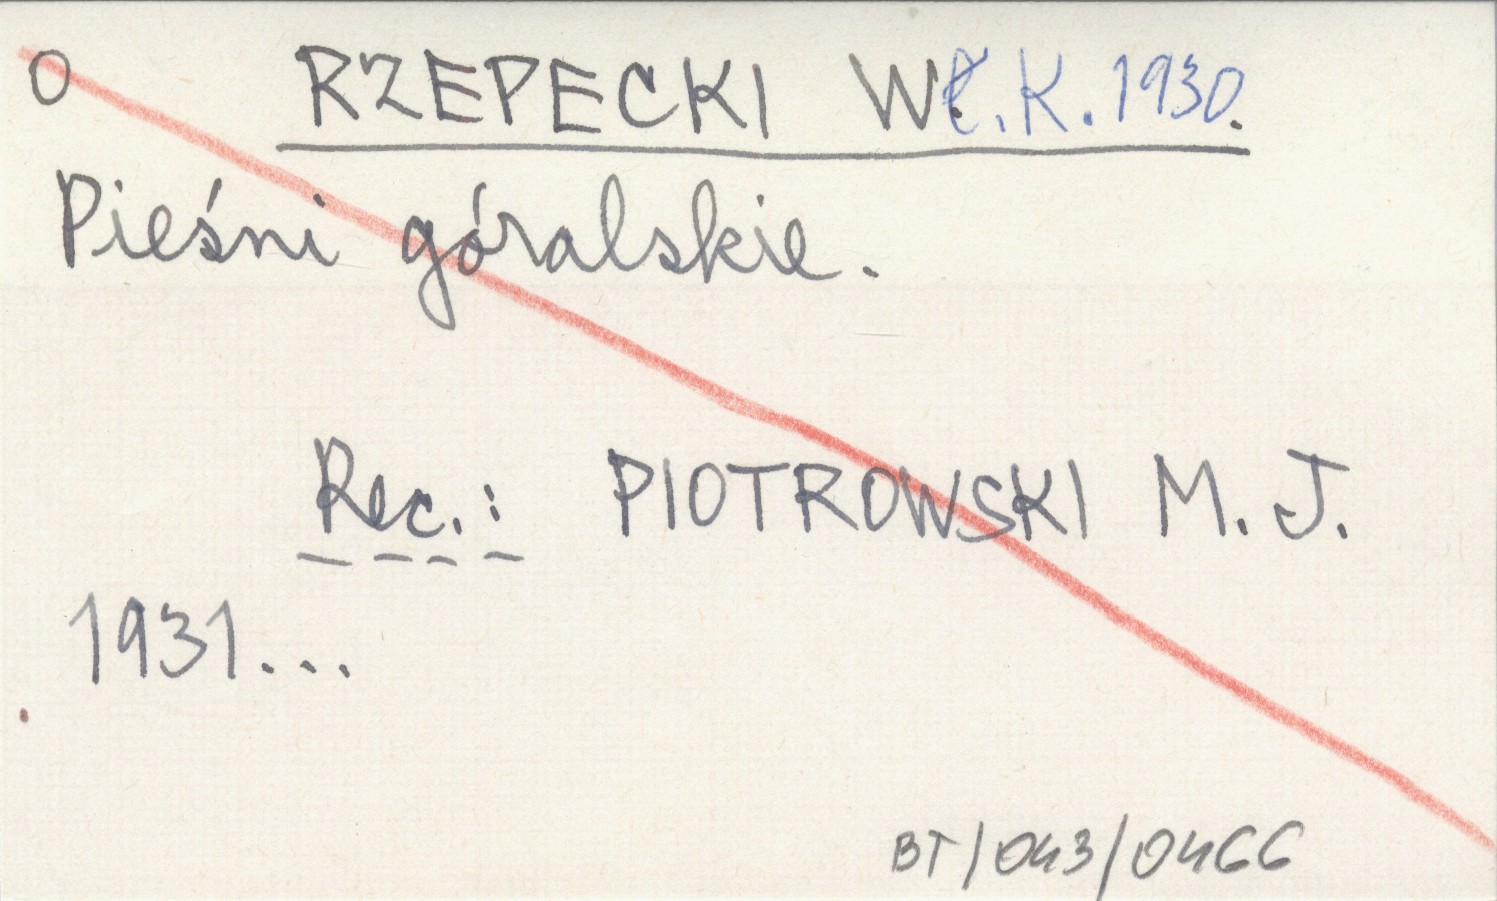 O RZEPECKI Wł. K. 1930.
Pieśni góralskie.
Rec.: PIOTROWSKI M. J.
1931...
BT/043/0466